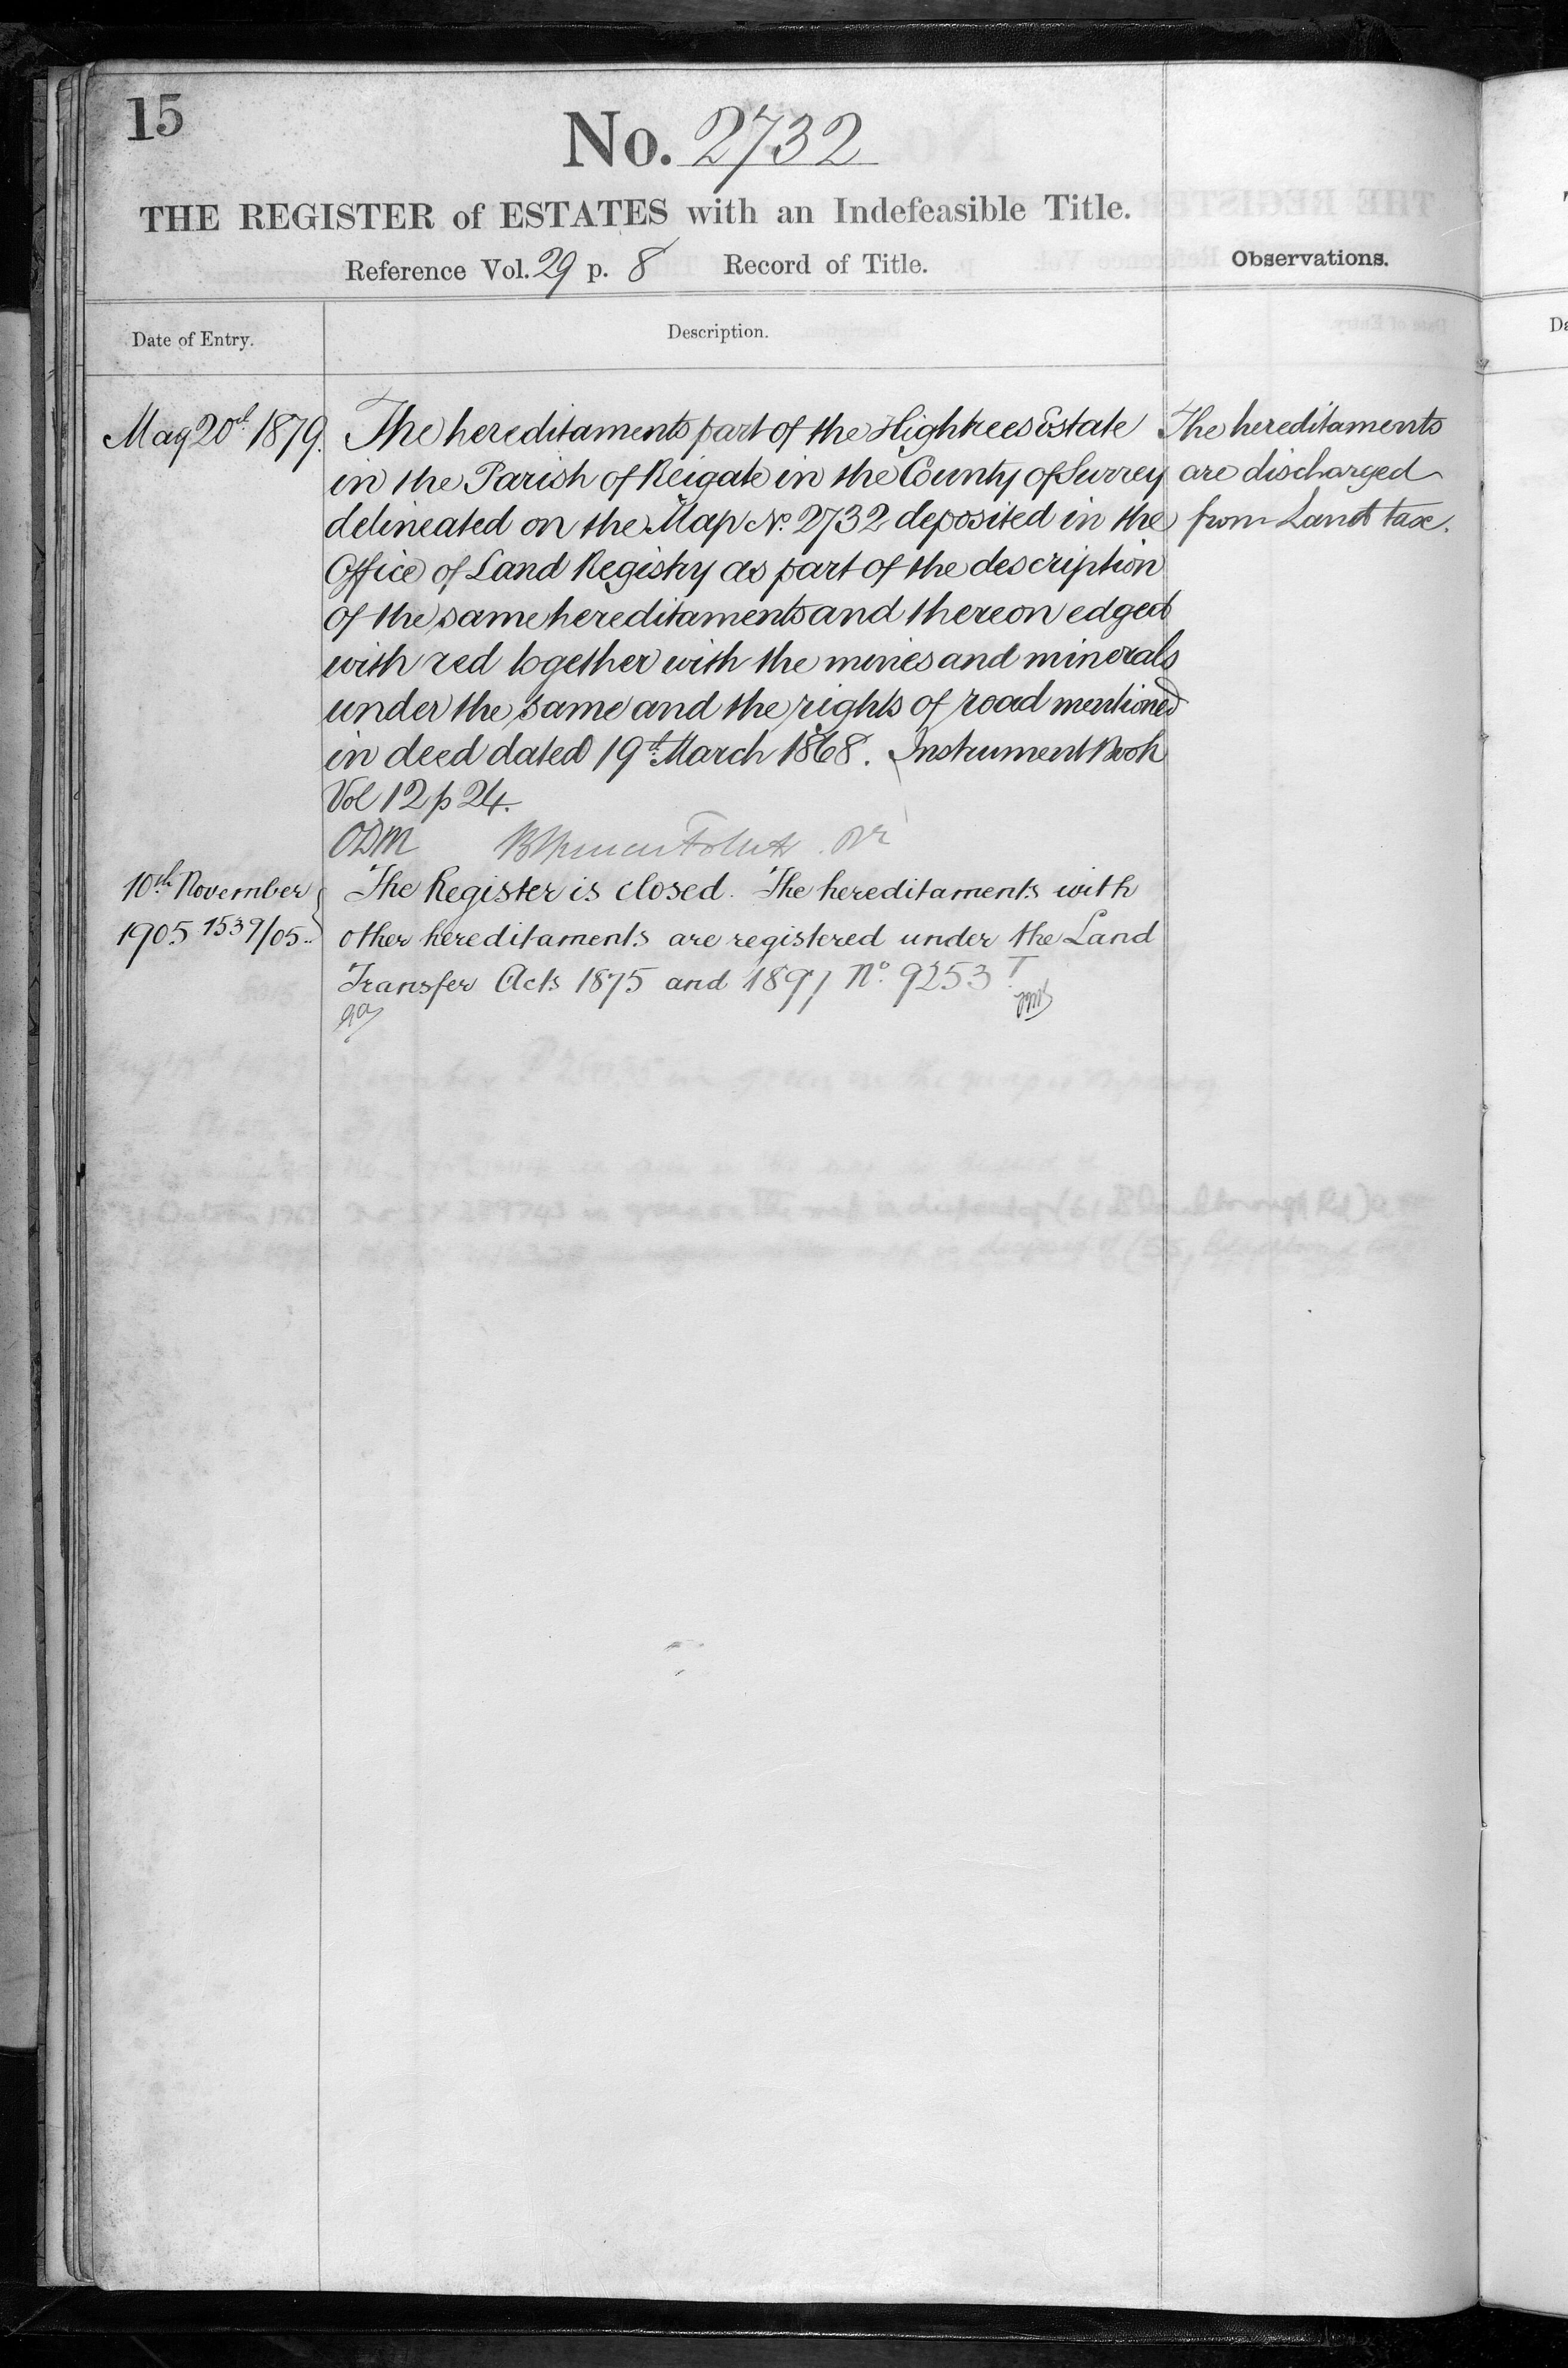 15
No. 2732
THE REGISTER of ESTATES with an Indefeasible Title.
Reference Vol. 29 p. 8 Record of Title.
Observations.
Date of Entry.
Description.
May 20th 1879.
The hereditaments part of the Hightrees Estate
in the Parish of Reigate in the County of Surrey
delineated on the Map No. 2732 deposited in the
Office of Land Registry as part of the description
of the same hereditaments and thereon edged
with red together with the mines and minerals
under the same and the rights of road mentioned
in deed dated 19th March 1868. Instrument Book
Vol 12 p 24.
ODM
The hereditaments
are discharged
from Land tax.
10th November
1905 1539/05
The Register is closed. The hereditaments with
other hereditaments are registered under the Land
Transfer Acts 1875 and 1897 No. 9253